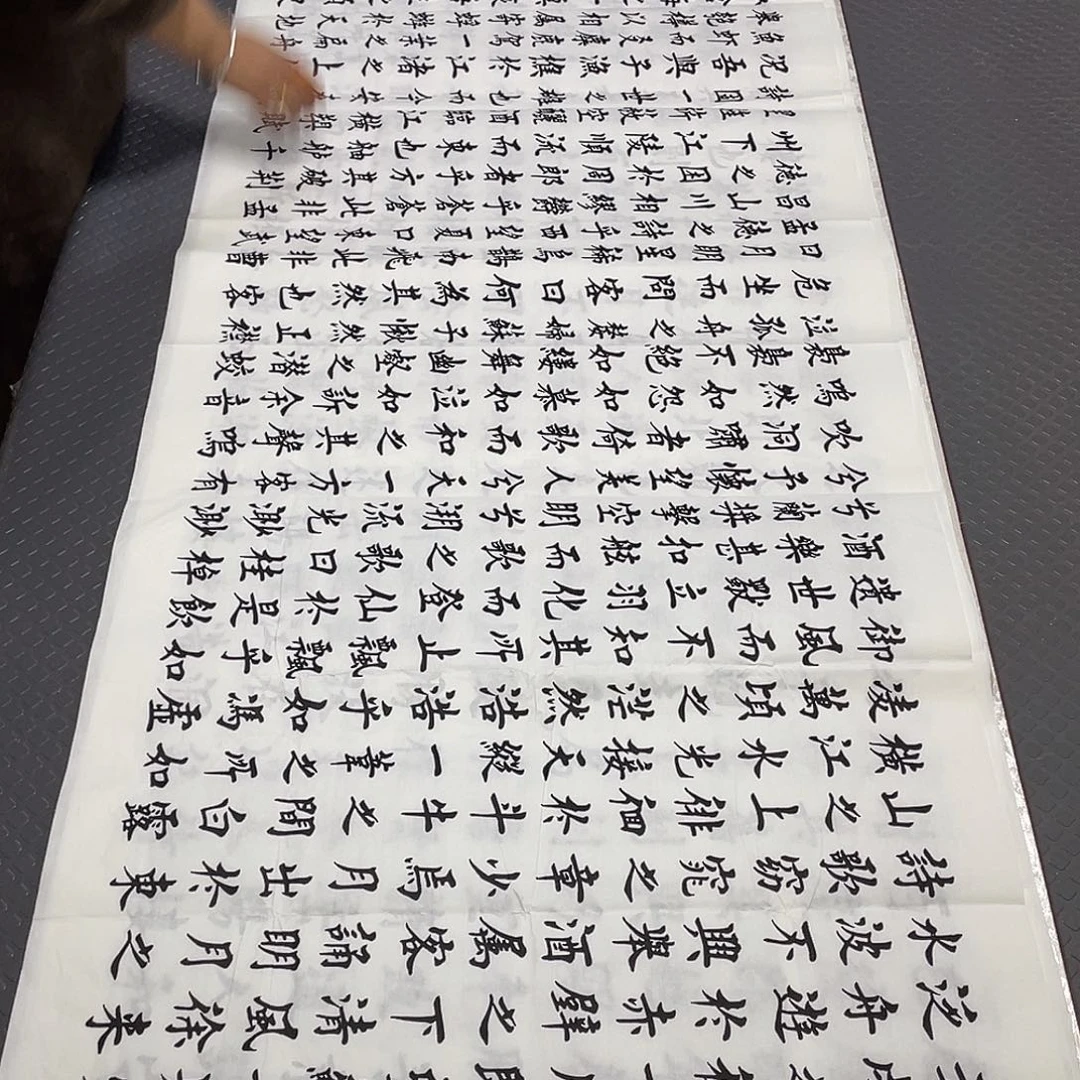 泛舟遊於赤壁之下清風徐來
水波不興舉酒屬客誦明月之
詩歌窈窕之章少焉月出於東
山之上徘徊於斗牛之間白露
橫江水光接天縱一葦之所如
凌萬頃之茫然浩浩乎如馮虛
御風而不知其所止飄飄乎如
遺世獨立羽化而登仙於是飲
酒樂甚扣舷而歌之歌曰桂棹
兮蘭槳擊空明兮溯流光渺渺
兮予懷望美人兮天一方客有
吹洞嘯者倚歌而和之其聲嗚
嗚然如怨如慕如泣如訴余音
裊裊不絕如縷舞幽壑之潛蛟
泣孤舟之嫠婦蘇子愀然正襟
危坐而問客曰何為其然也客
曰月明星稀烏鵲南飛此非曹
孟德之詩乎西望夏口東望武
昌山川相繆鬱乎蒼蒼此非孟
德之困於周郎者乎方其破荊
州下江陵順流而東也舳艫千
蔽空釃酒臨江橫槊賦
詩固一世之雄也而今
況吾與子漁樵於江渚之上
魚蝦而友麋鹿駕一葉之扁舟